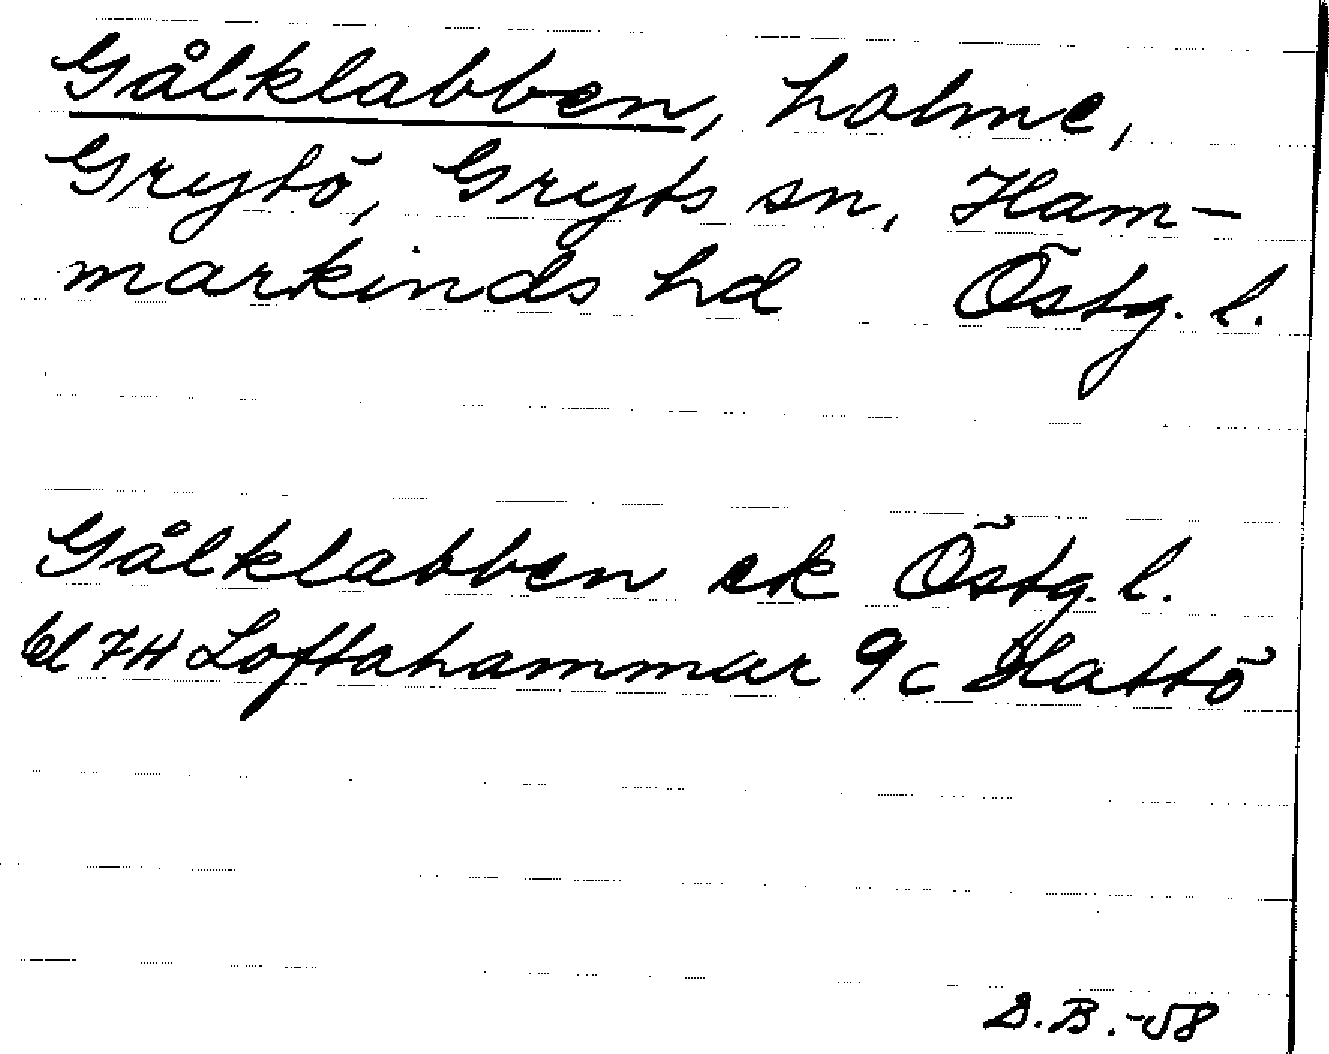 Gålklabben, holme,
Grytö, Gryts sn, Ham-
markinds hd Östg. l.
Gålklabben ek Östg. l.
bl 7H Loftahammar 9c Slattö
D.B.-58